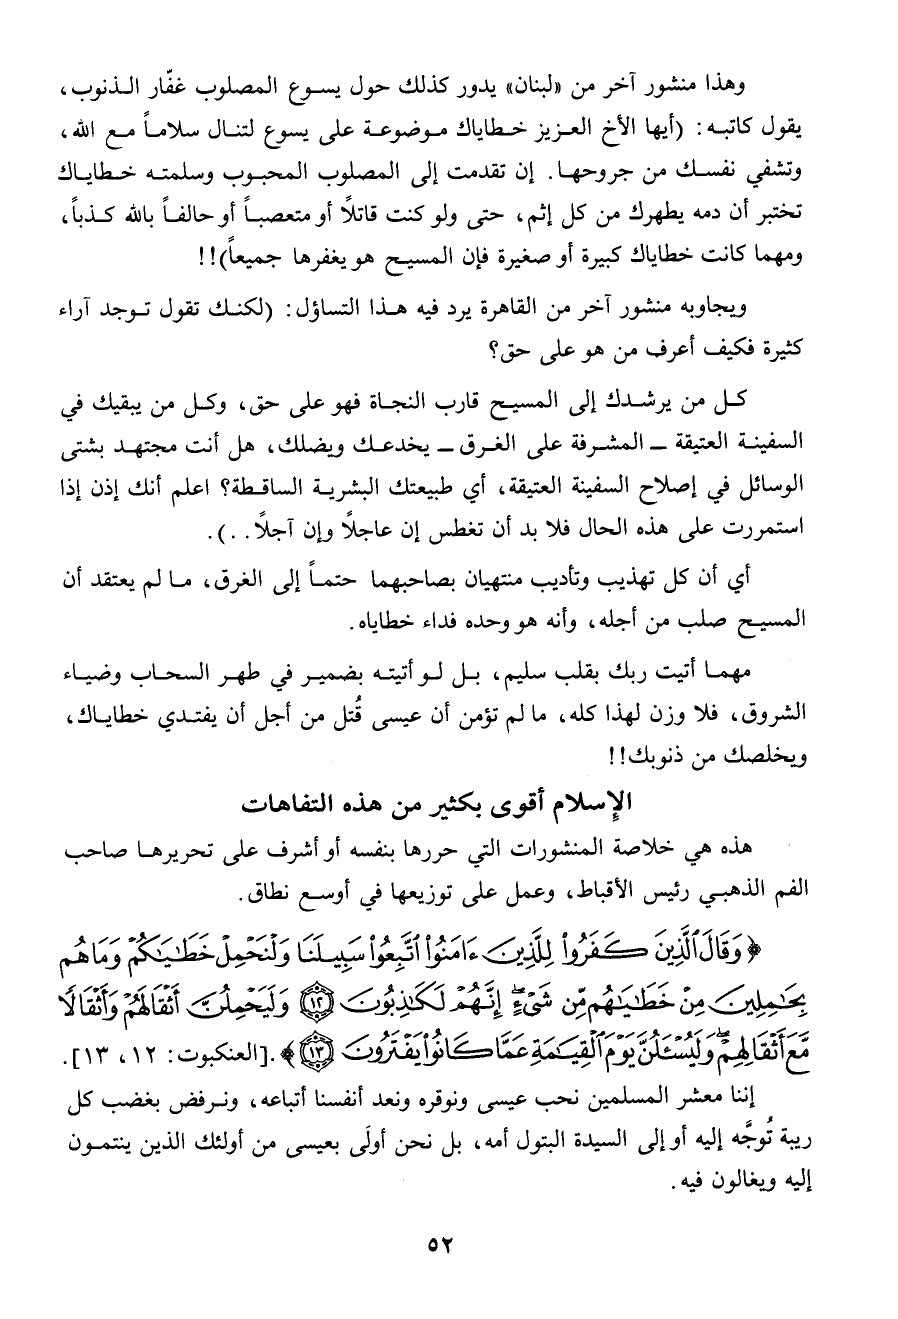 وهذا منشور آخر من «لبنان» يدور كذلك حول يسوع المصلوب غفّار الذنوب،
يقول كاتبه: (أيها الأخ العزيز خطاياك موضوعة على يسوع لتنال سلاماً مع الله،
وتشفي نفسك من جروحها. إن تقدمت إلى المصلوب المحبوب وسلمته خطاياك
تختبر أن دمه يطهرك من كل إثم، حتى ولو كنت قاتلاً أو متعصباً أو حالفاً بالله كذباً،
ومهما كانت خطاياك كبيرة أو صغيرة فإن المسيح هو يغفرها جميعاً)!!
ويجاوبه منشور آخر من القاهرة يرد فيه هذا التساؤل: (لكنك تقول توجد آراء
كثيرة فكيف أعرف من هو على حق؟
كل من يرشدك إلى المسيح قارب النجاة فهو على حق، وكل من يبقيك في
السفينة العتيقة ـ المشرفة على الغرق ـ يخدعك ويضلك، هل أنت مجتهد بشتى
الوسائل في إصلاح السفينة العتيقة، أي طبيعتك البشرية الساقطة؟ اعلم أنك إذن إذا
استمررت على هذه الحال فلا بد أن تغطس إن عاجلاً وإن آجلاً..).
أي أن كل تهذيب وتأديب منتهيان بصاحبهما حتماً إلى الغرق، ما لم يعتقد أن
المسيح صلب من أجله، وأنه هو وحده فداء خطاياه.
مهما أتيت ربك بقلب سليم، بل لو أتيته بضمير في طهر السحاب وضياء
الشروق، فلا وزن لهذا كله، ما لم تؤمن أن عيسى قُتل من أجل أن يفتدي خطاياك،
ويخلصك من ذنوبك!!
الإسلام أقوى بكثير من هذه التفاهات
هذه هي خلاصة المنشورات التي حررها بنفسه أو أشرف على تحريرها صاحب
الفم الذهبي رئيس الأقباط، وعمل على توزيعها في أوسع نطاق.
﴿وَقَالَ ٱلَّذِينَ كَفَرُوا۟ لِلَّذِينَ ءَامَنُوا۟ ٱتَّبِعُوا۟ سَبِيلَنَا وَلْنَحْمِلْ خَطَـٰيَـٰكُمْ وَمَا هُم
بِحَـٰمِلِينَ مِنْ خَطَـٰيَـٰهُم مِّن شَىْءٍ ۖ إِنَّهُمْ لَكَـٰذِبُونَ ١٢ وَلَيَحْمِلُنَّ أَثْقَالَهُمْ وَأَثْقَالًا
مَّعَ أَثْقَالِهِمْ ۖ وَلَيُسْـَٔلُنَّ يَوْمَ ٱلْقِيَـٰمَةِ عَمَّا كَانُوا۟ يَفْتَرُونَ ١٣﴾. [العنكبوت: ١٢، ١٣].
إننا معشر المسلمين نحب عيسى ونوقره ونعد أنفسنا أتباعه، ونرفض بغضب كل
ريبة تُوجَّه إليه أو إلى السيدة البتول أمه، بل نحن أولَى بعيسى من أولئك الذين ينتمون
إليه ويغالون فيه.
٥٢